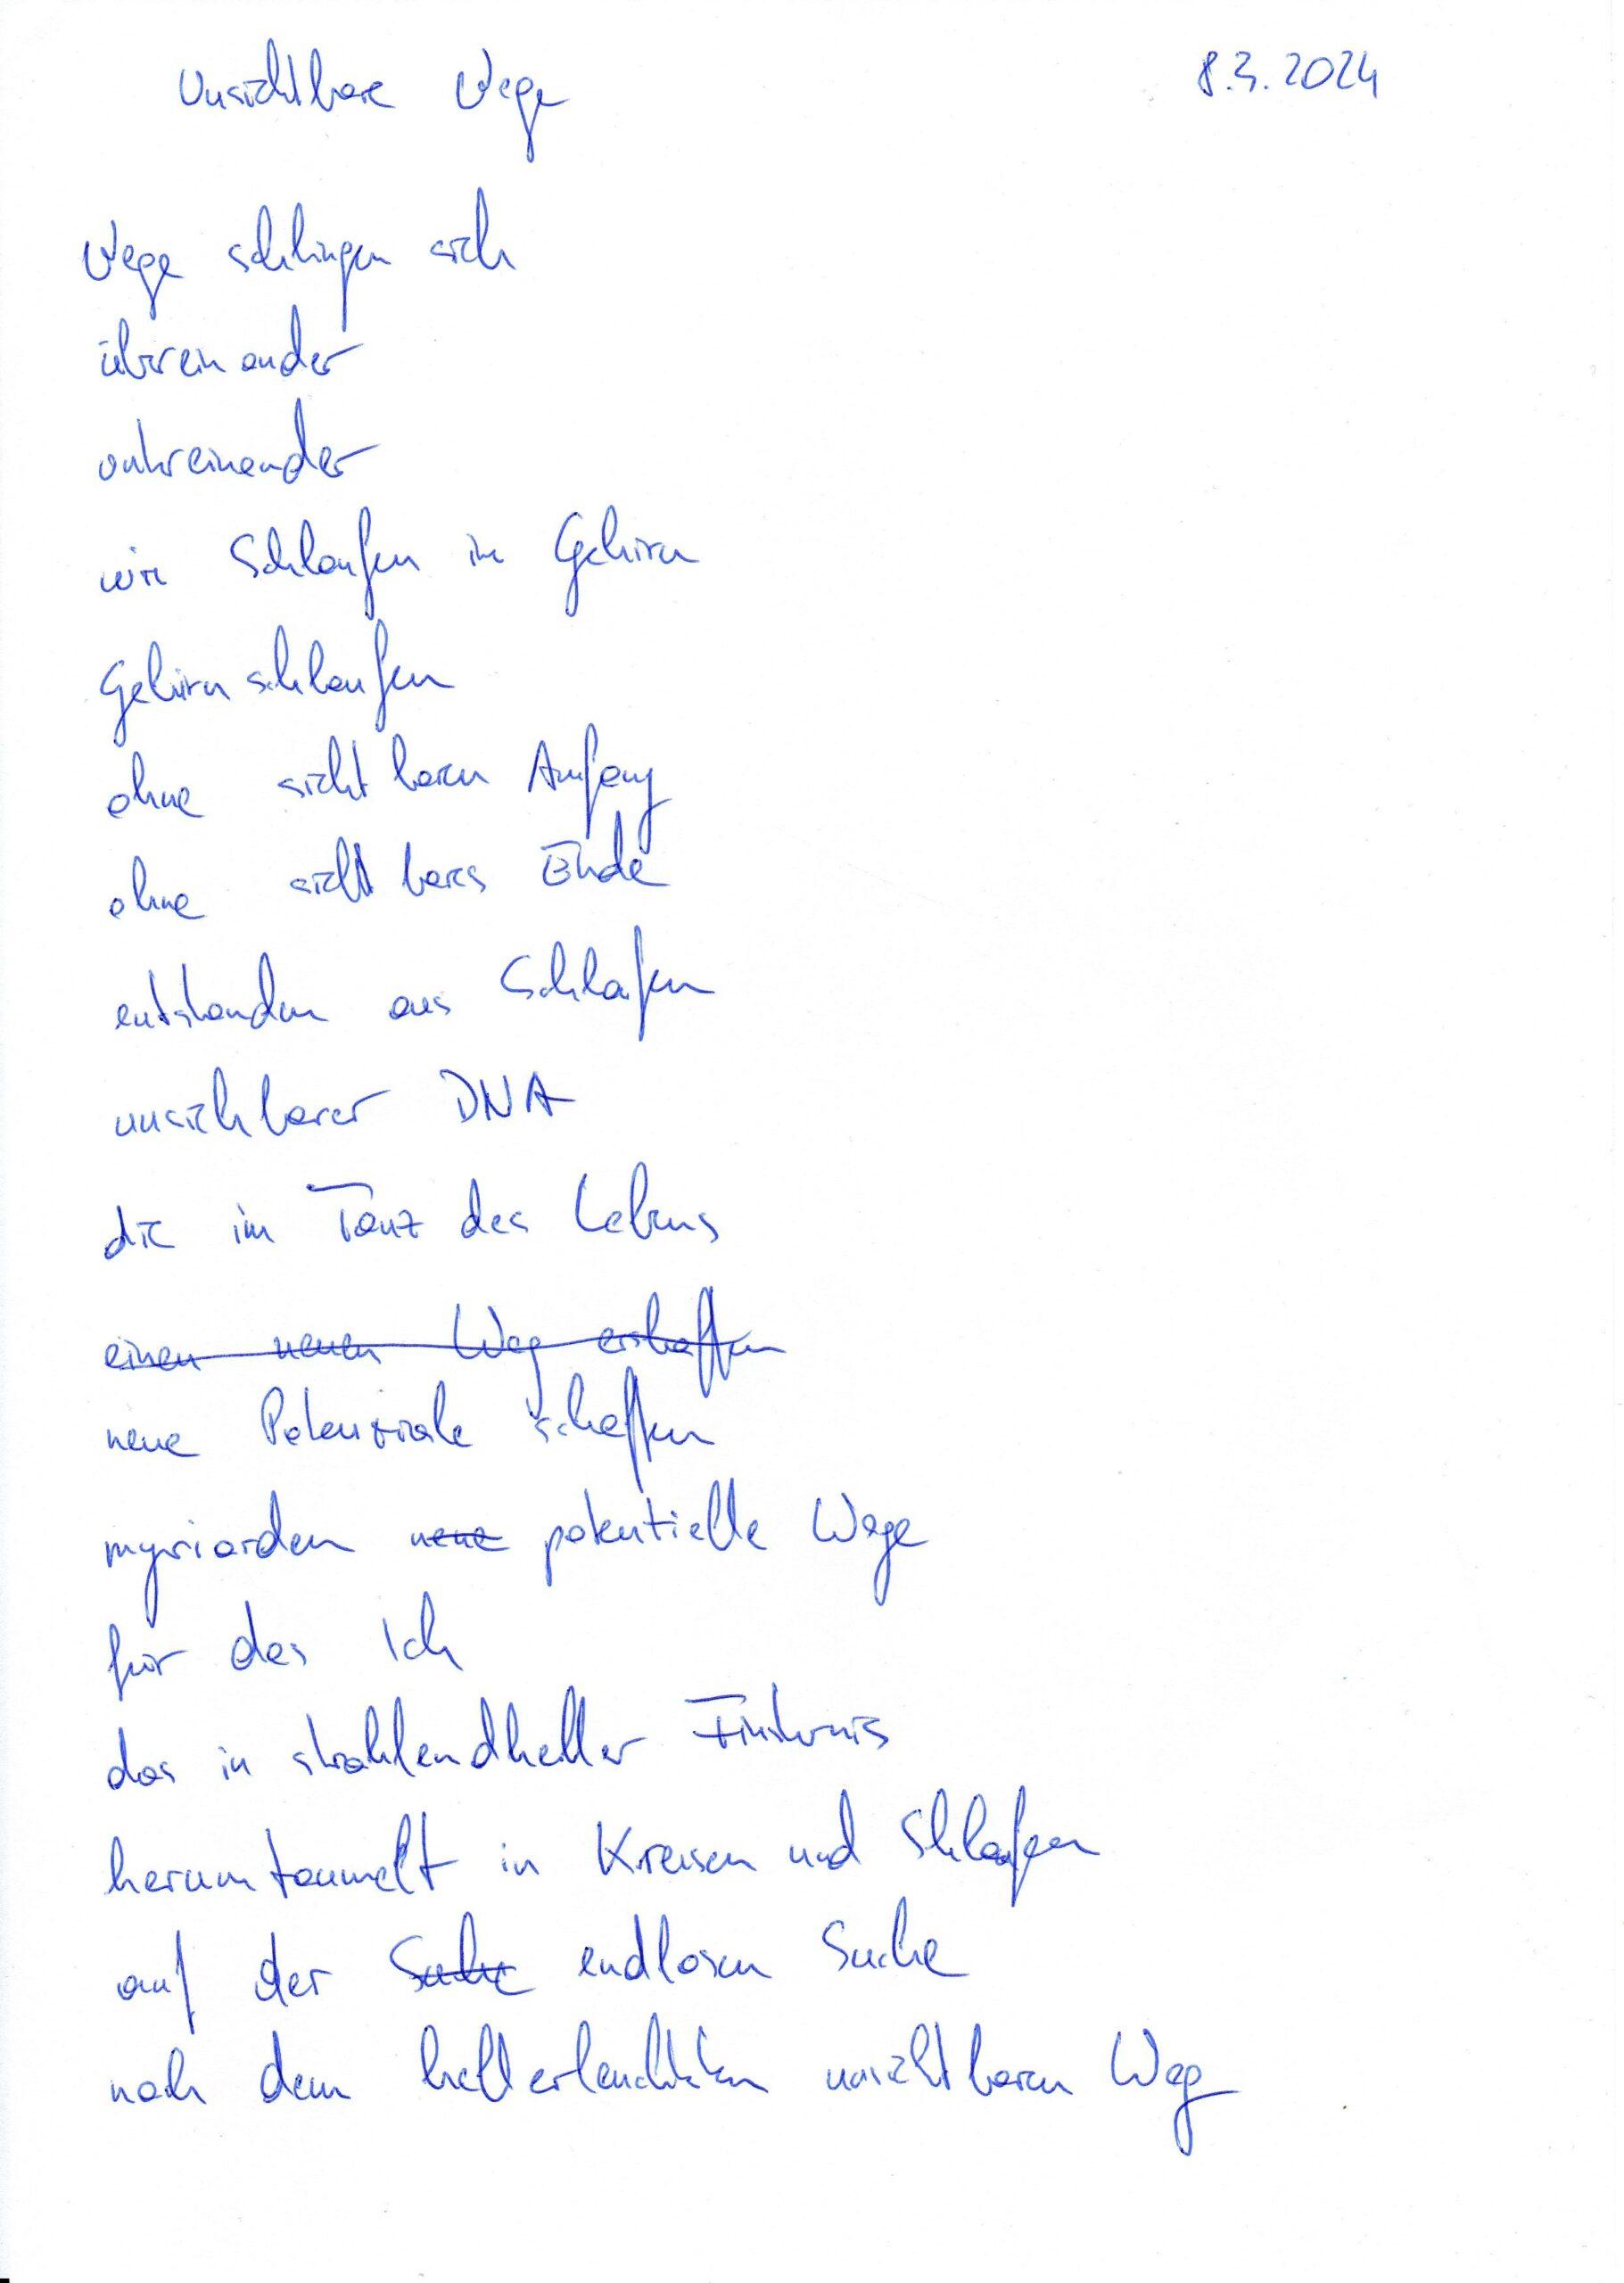 Unsichtbare Wege 8.3.2024
Wege schlingen sich
übereinander
untereinander
wie Schlaufen im Gehirn
Gehirnschlaufen
ohne sichtbaren Anfang
ohne sichtbares Ende
entstanden aus Schlafen
unsichbarer DNA
die im Tanz des Lebens
einen neuen Weg erschaffen
neue Potenziale schaffen
myriarden neue potentielle Wege
für das Ich
das in strahlendheller Finsternis
herumtaumelt in Kreisen und Schlaufen
auf der Suche endlosen Suche
nach dem hell erleuchteten unsichtbaren Weg